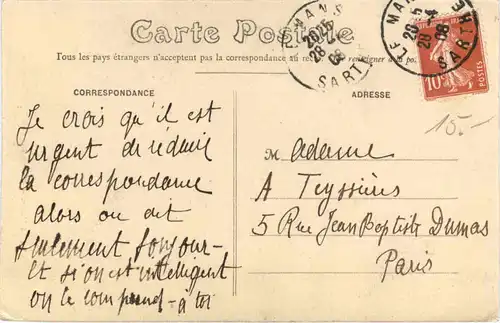 Carte Postale
Tous les pays étrangers n'acceptent pas la correspondance au re
renseigner à la po
LE MANS
20 25
28 -4
08
SARTHE
LE MAN
20 5
28 -4
08
SARTHE
10
POSTES
15.-
CORRESPONDANCE
Je crois qu'il est
urgent de réduire
la correspondance
alors on dit
seulement bonjour-
Et si on est intelligent
on le comprend - à toi
ADRESSE
Madame
A Teyssières
5 Rue Jean Baptiste Dumas
Paris